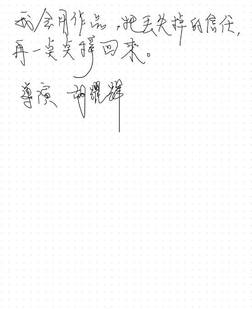 我会用作品，把丢失掉的信任，
再一点点挣回来。
导演 胡耀辉